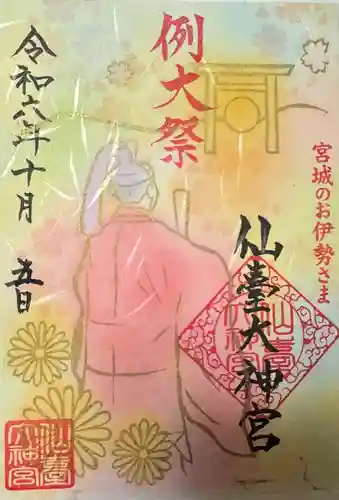 例大祭
宮城のお伊勢さま
仙臺大神宮
令和六年十月 五日
仙臺大神宮